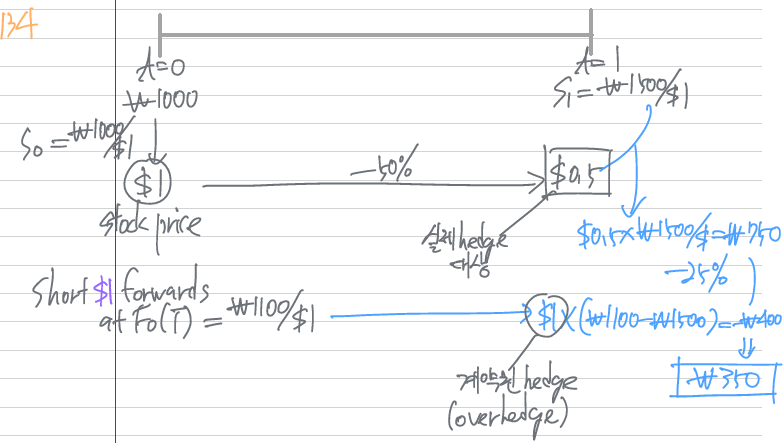 134
t=0
₩1000
t=1
S₁=₩1500/$1
S₀=₩1000/$1
$1
stock price
-50%
$0.5
실제 hedge
대상
$0.5×₩1500/$=₩750
-25%
Short $1 forwards
at F₀(T) = ₩1100/$1
$1×(₩1100-₩1500)=-₩400
⇓
₩350
계약한 hedge
(overhedge)